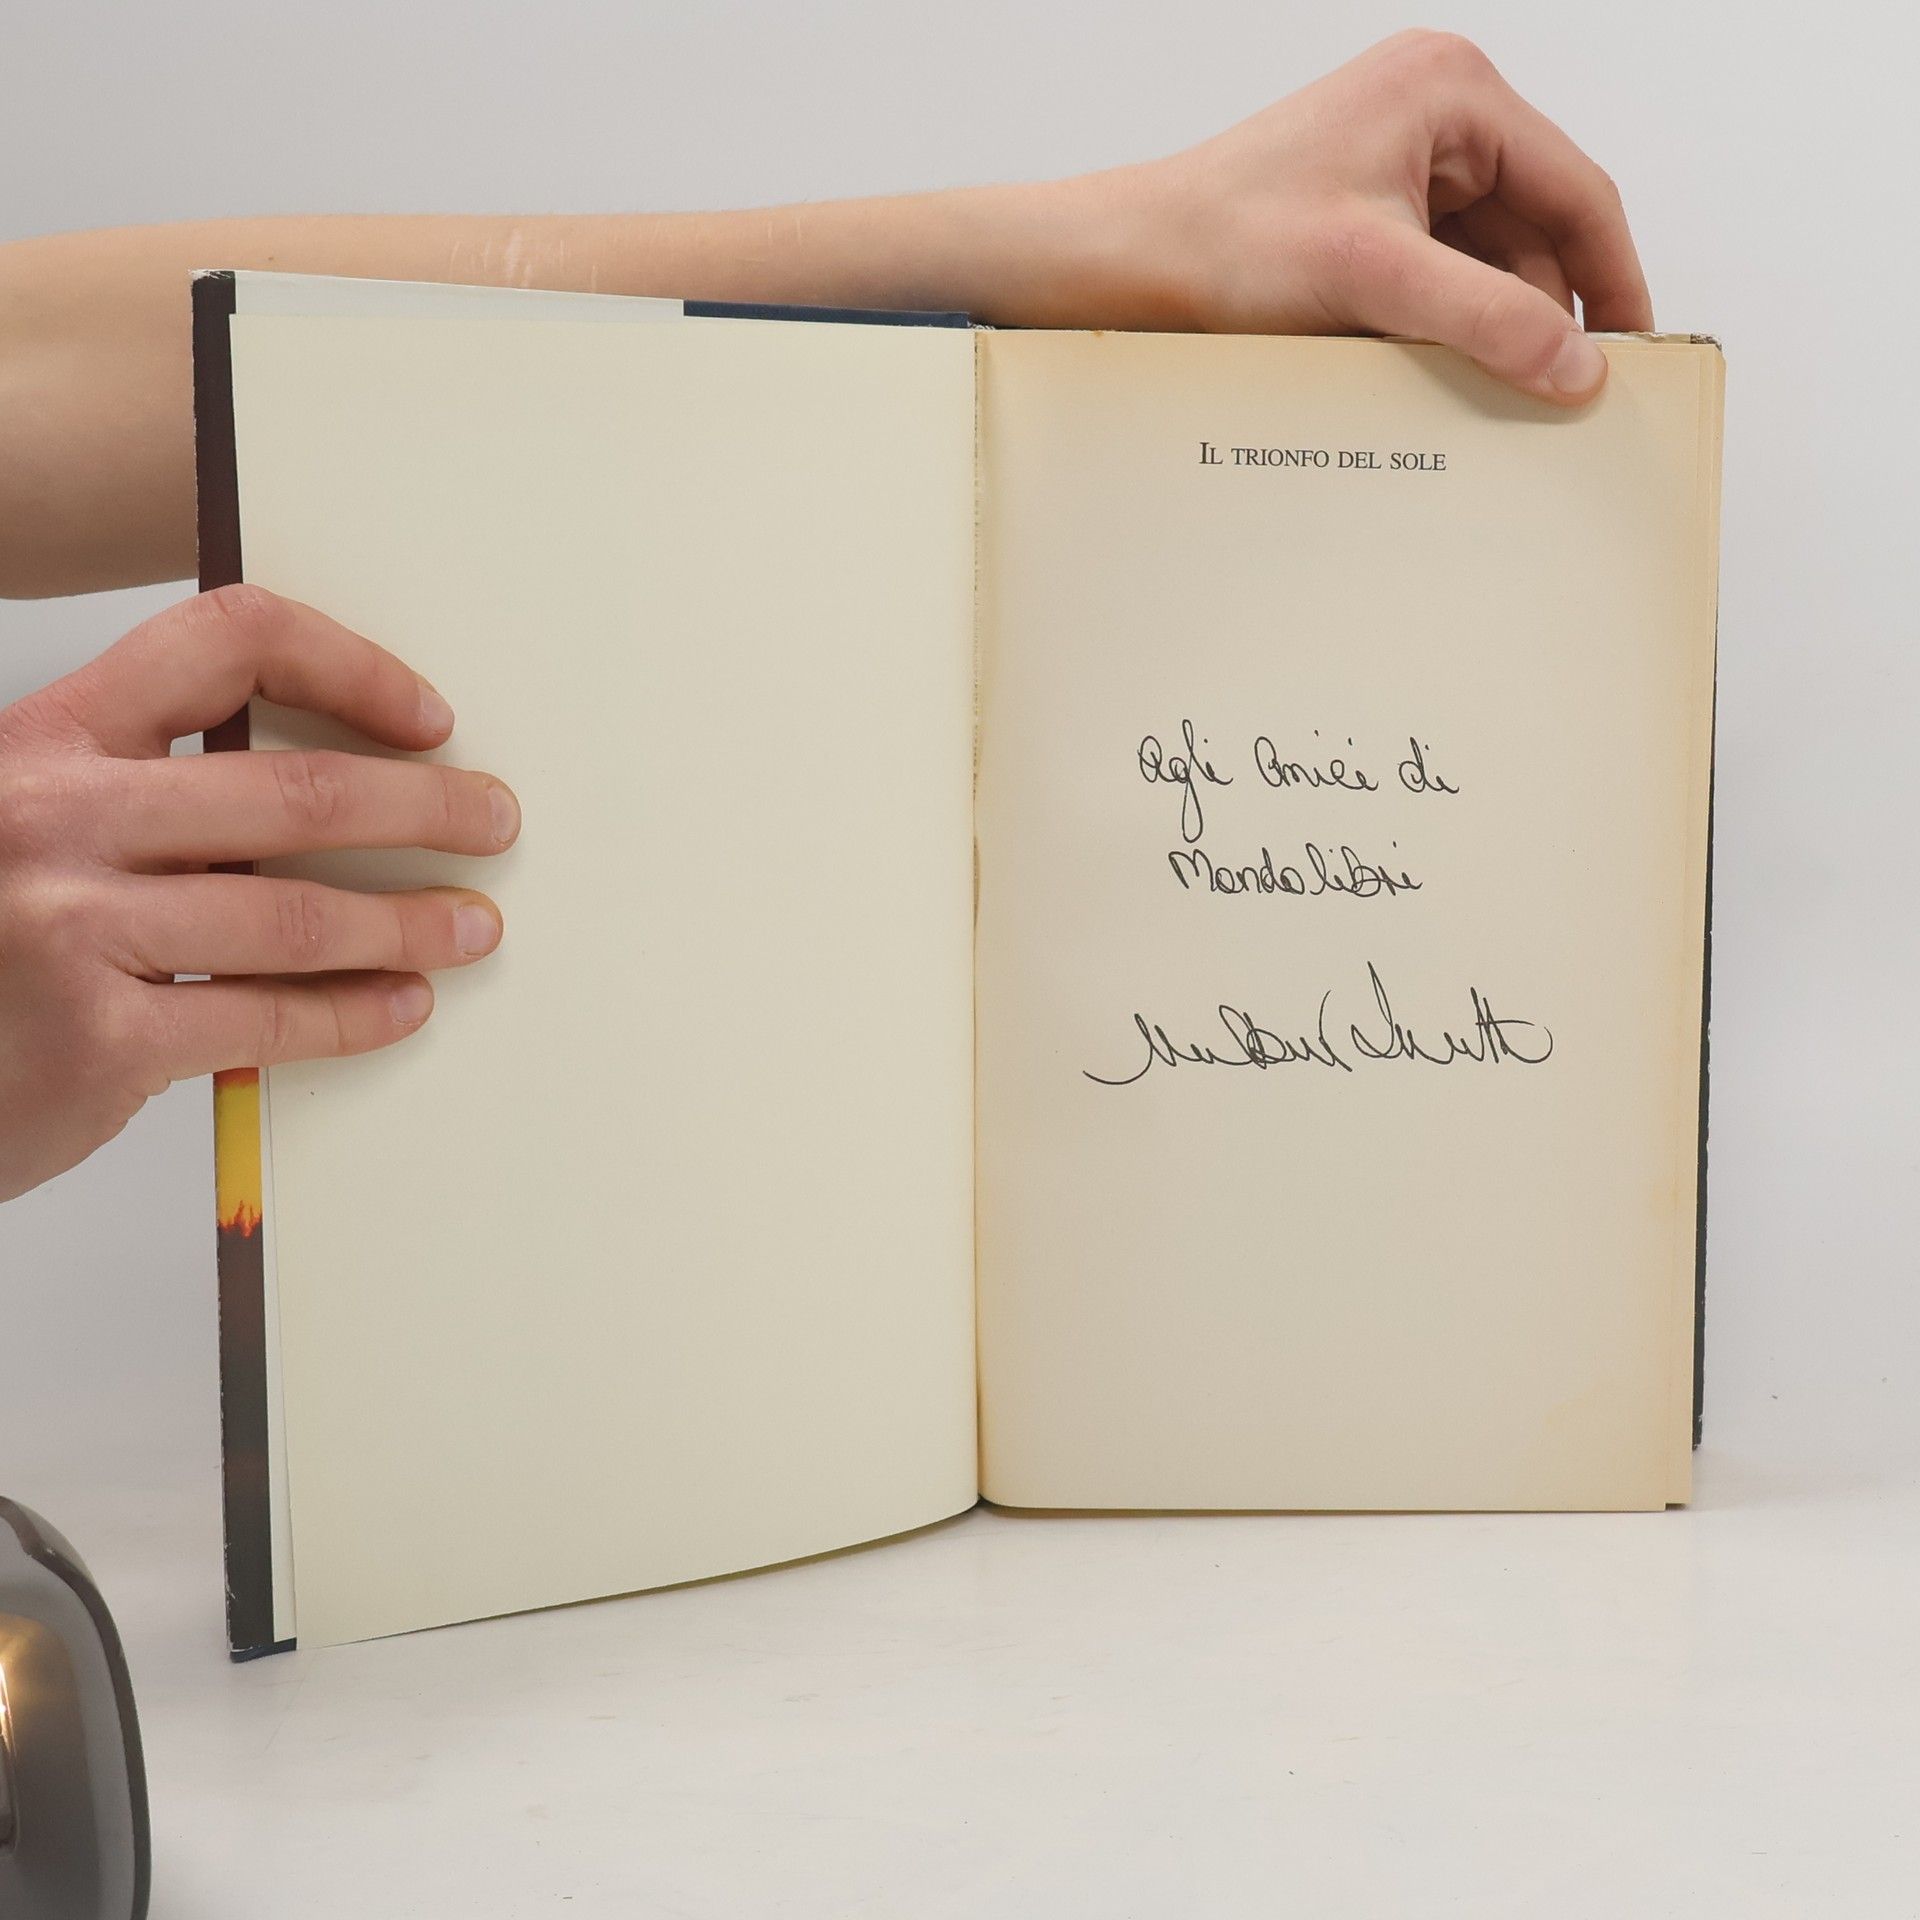 IL TRIONFO DEL SOLE
Agli Amici di
Mondolibri
Wilbur Smith